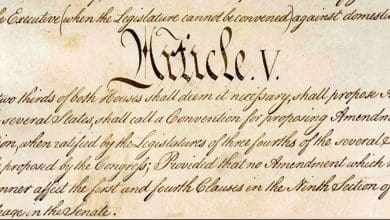 Executive (when the Legislature cannot be convened) against domest
Article. V.
two thirds of both Houses shall deem it necessary, shall propose
several States, shall call a Convention for proposing Amendm
ion, when ratified by the Legislatures of three fourths of the several
proposed by the Congress; Provided that no Amendment which
nner affect the first and fourth Clauses in the Ninth Section of
age in the Senate.